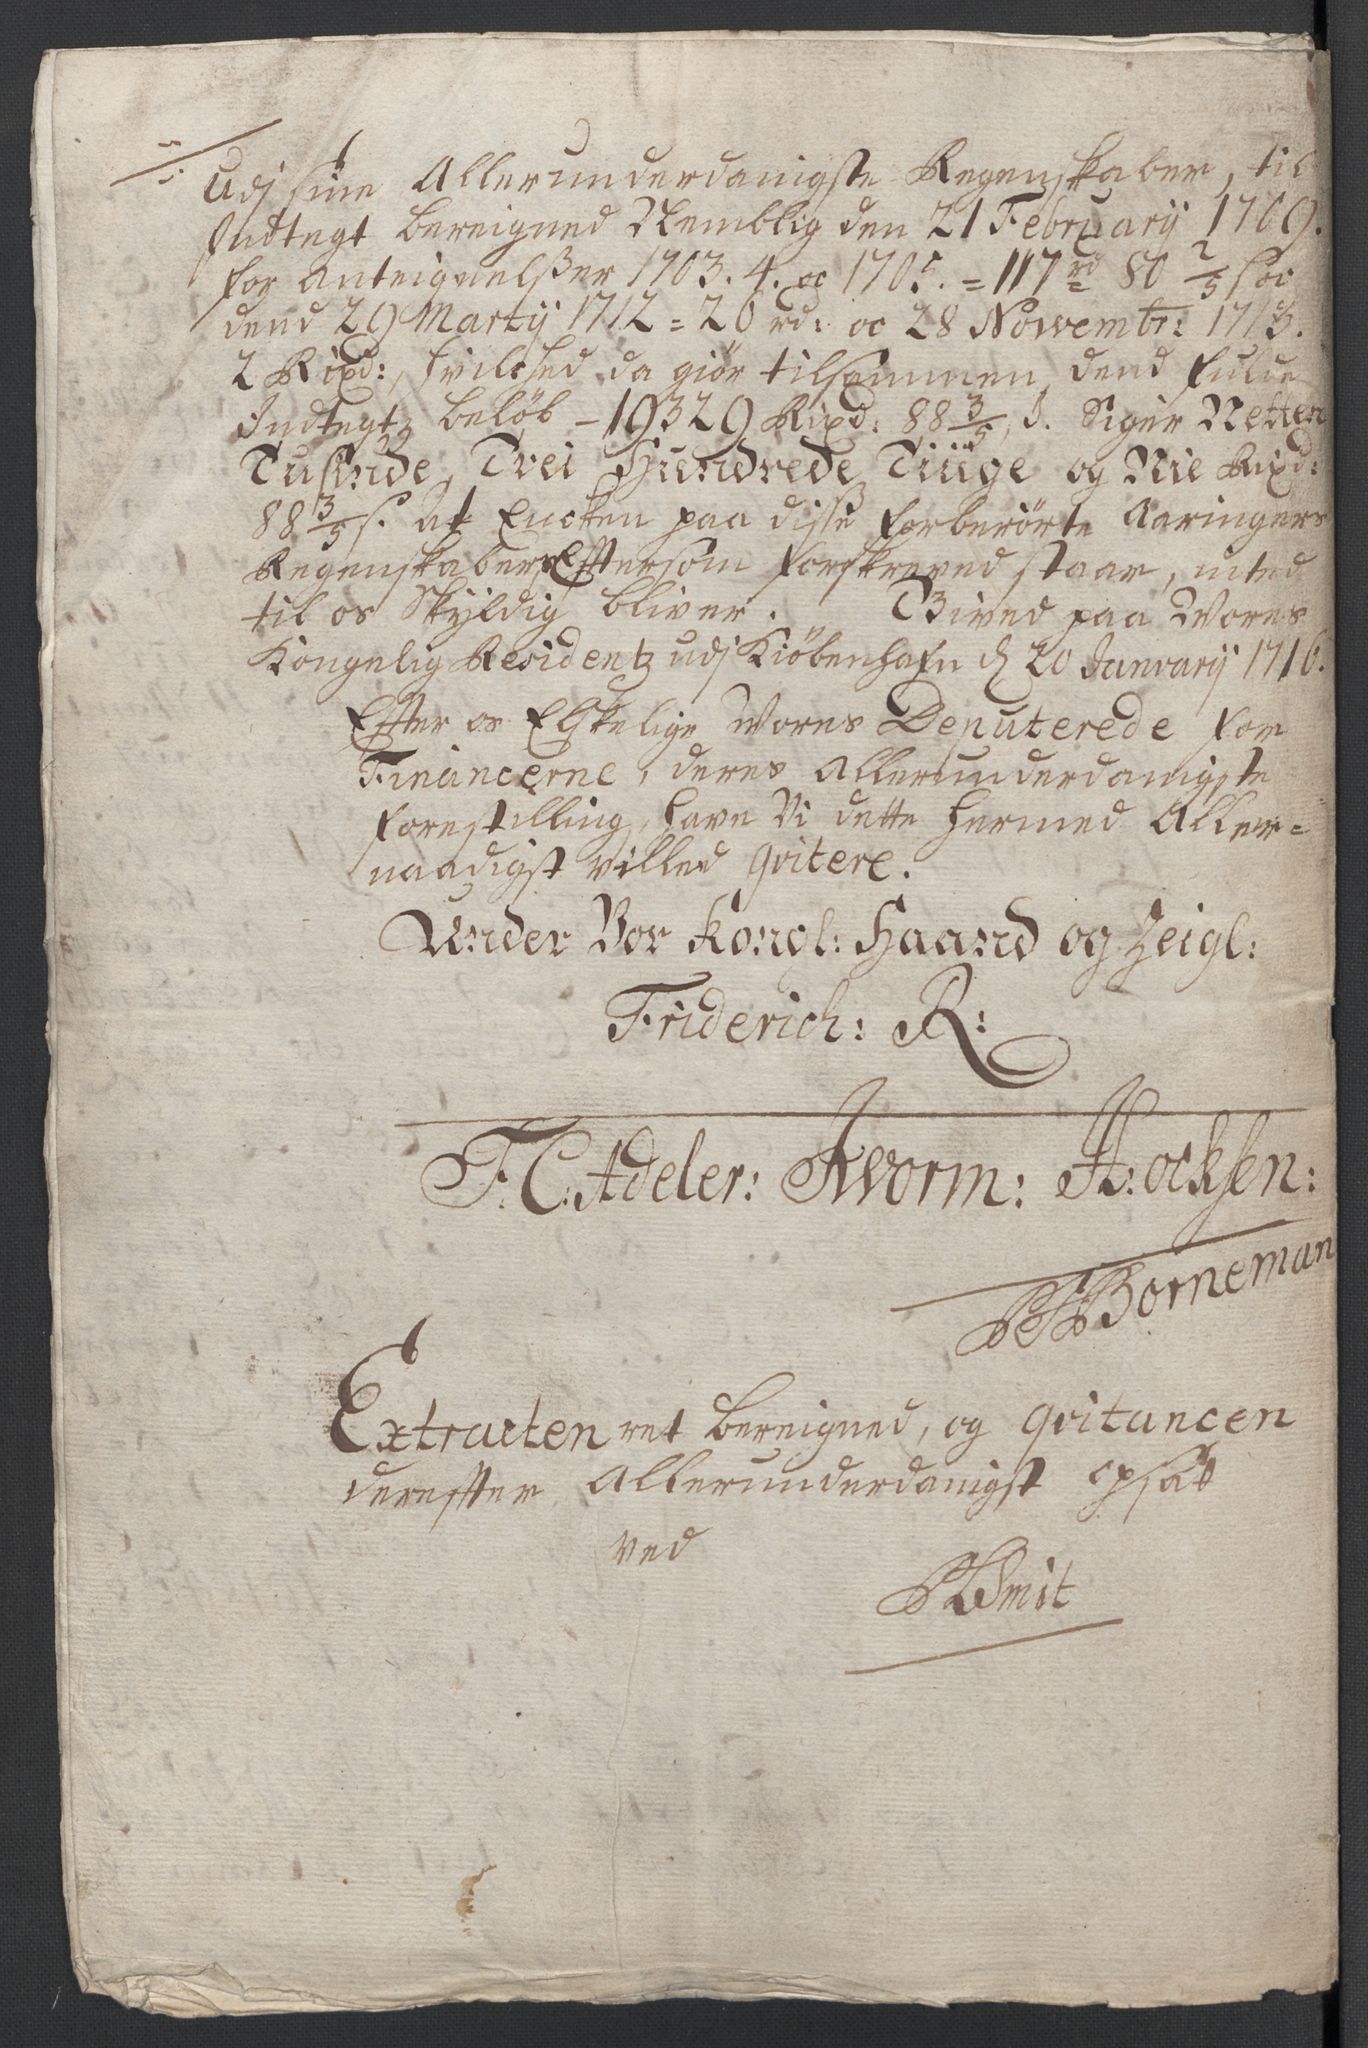 Udj sine Allerunderdanigste Regenskaber, til
Indtegt bereigned Nemblig den 21 Februarij 1709.
for Anteignelsser 1703. 4. oc 1705. = 117 rd 80 2/5 s oc
dend 29 Martij 1712 = 20 rd: oc 28 Novembr: 1713.
2 Rixd:, hvilched da giør tilsammen dend fulde
Indtegtz beløb - 19329 Rixd: 88 3/5 s. Siger Netten
Tusinde, Trei Hundrede Tiuge og Nie Rixd:
88 3/5 s. at Encken paa disse forberørte Aaringers
Regenskaber Eftersom forskreved staar, inted
til os Skyldig bliver. Gived paa Vores
Kongelig Residentz udj Kiøbenhafn d 20 Januarij 1716.
Efter os Elskelige Vores Deputerede for
Financerne, deres Allerunderdanigste
forestilling, have Vi dette hermed Aller=
naadigst villed qvitere.
Under Vor Kongl: Haand og Zeigl:
Friderich: R:
F. C. Adeler: J Worm: Hocksen:
Borneman
Extracten ret bereigned, og qvitancen
derefter Allerunderdanigst opsat
ved
Smit